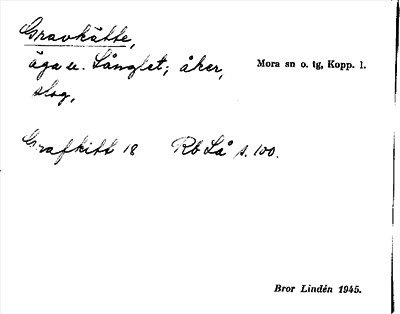 Gravkätte,
äga u. Långlet; åker,
slog,
Mora sn o. tg, Kopp. l.
Grafkitt 18 Rb Lå s. 100.
Bror Lindén 1945.